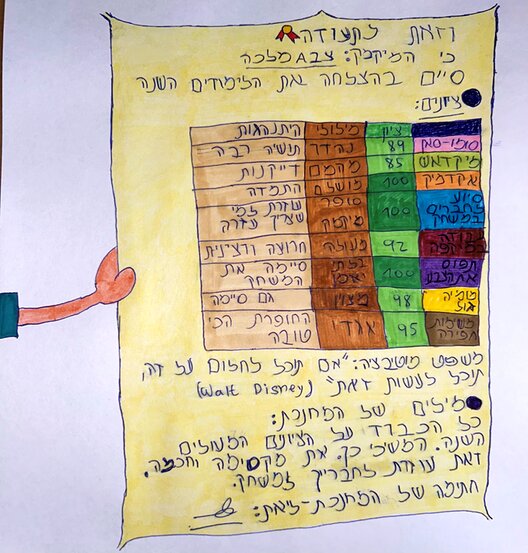 וזאת לתעודה
כי המיקמק: צבA מלכה
סיים בהצלחה את הלימודים השנה
ציונים:
ציון מילולי היתנהגות
סומו-סאן 89 נהדר תושיה רבה
מיקדאש 85 מקסם דייקנות
אקדמיק 100 מושלם התמדה
סיוע לחברים במשחק 100 סופר מיקמק עוזרת למי שצריך עזרה
92 מעולה חרוצה ורצינית
תפוס את הצבע 100 בלתי יאמן סיימה את המשחק
מומיה אוצ 98 מצוין גם סיימה
משימות חפירה 95 אגדי החופרת הכי טובה
משפט מוטיבציה: "אם תוכל לחלום על זה,
תוכל לעשות זאת" (Walt Disney)
מילים של המחנכת:
כל הכבוד על הציונים המעולים
השנה. המשיכי כך. את מקסימה וחכמה.
זאת עוזרת לחברייך למשחק.
חתימה של המחנכת-ליאת: